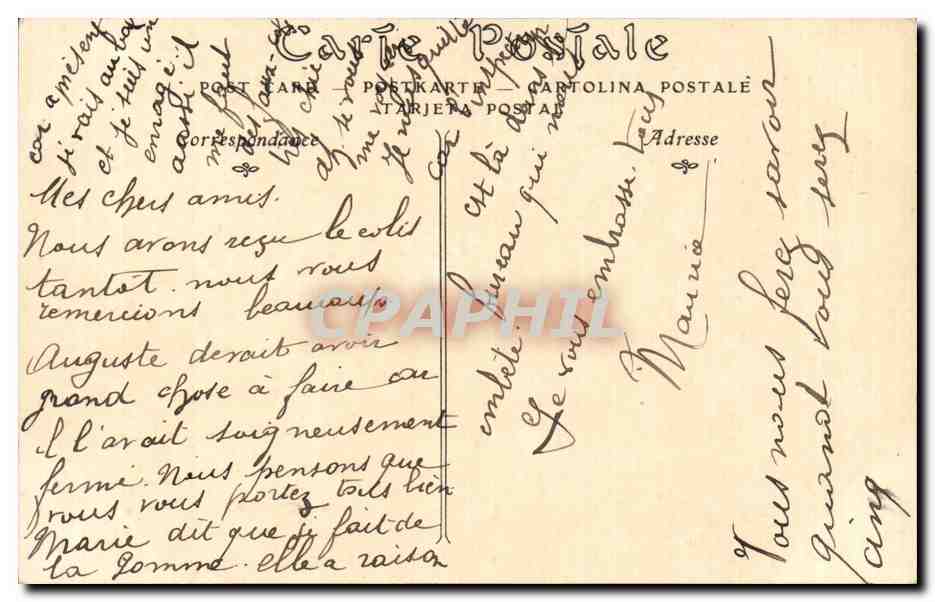 Carte Postale
POST CARD — POSTKARTE — CARTOLINA POSTALE
TARJETA POSTAL
Correspondance
Adresse
Mes chers amis.
Nous avons reçu le colis
tantôt. nous vous
remercions beaucoup
Auguste devait avoir
grand chose à faire car
il l'avait soigneusement
fermé. Nous pensons que
vous vous portez tous bien
Marie dit que j'ai fait de
la gomme. elle a raison
car à présent
si vais au bal
et je suis un
enragé.
aussi il
me faut
je vous
car l'inspecteur
est là dans le
bureau qui nous
embête.
Je vous embrasse. tous
Maurice
Vous nous ferez savoir
quand vous serez
cinq
CPAPHIL